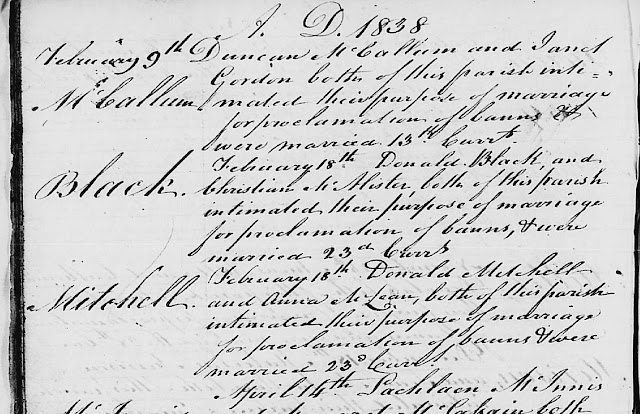 A. D. 1838
February 9th Duncan McCallum and Janet
Gordon both of this parish inti=
McCallum mated their purpose of marriage
for proclamation of banns &
were married 13th Currt
February 18th Donald Black, and
Black. Christian McAlister both of this parish
intimated their purpose of marriage
for proclamation of banns, & were
married 23d Currt
February 18th Donald Mitchell
Mitchell. and Anna McLean, both of this parish
intimated their purpose of marriage
for proclamation of banns & were
married 23d Currt
April 14th Lachlan McInnis
both